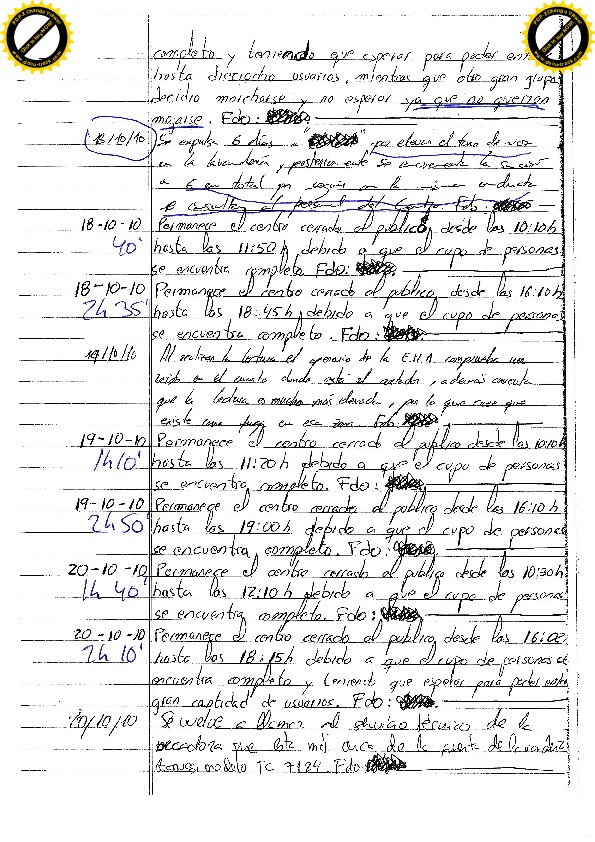 completo y teniendo que esperar para poder
hasta dieciocho usuarios, mientras que otro gran grupo
decidio marcharse y no esperar ya que no querian
mojarse. Fdo:
18/10/10 Se expulsa 6 días a " " por elevar el tono de voz
en la lavandería, y posteriormente se incrementa la sanción
a 6 en total por seguir con la misma conducta
al personal del Centro Fdo:
18-10-10 Permanece el centro cerrado al publico, desde las 10:10h
40' hasta las 11:50h debido a que el cupo de personas
se encuentra completo Fdo:
18-10-10 Permanece el centro cerrado al publico, desde las 16:10h
2h 35' hasta las 18:45h, debido a que el cupo de personas
se encuentra completo. Fdo:
19/10/10 Al realizar la lectura el operario de la comprueba un
ruido en el cuarto donde está el contador, además
que la lectura es mucho más elevada, por lo que cree que
existe una fuga en esa zona. Fdo:
19-10-10 Permanece el centro cerrado al publico desde las 10:10h
1h 10' hasta las 11:20h debido a que el cupo de personas
se encuentra completo. Fdo:
19-10-10 Permanece el centro cerrado al publico desde las 16:10h
2h 50' hasta las 19:00h debido a que el cupo de personas
se encuentra completo. Fdo:
20-10-10 Permanece el centro cerrado al publico desde las 10:30h
1h 40' hasta las 12:10h debido a que el cupo de personas
se encuentra completo. Fdo:
20-10-10 Permanece el centro cerrado al publico, desde las 16:
2h 10' hasta las 18:15h debido a que el cupo de personas se
encuentra completo y teniendo que esperar para poder entrar
gran cantidad de usuarios. Fdo:
20/10/10 Se vuelve a llamar al servicio técnico de la
secadora que está más cerca de la puerta de lavandería
modelo TC 7124. Fdo